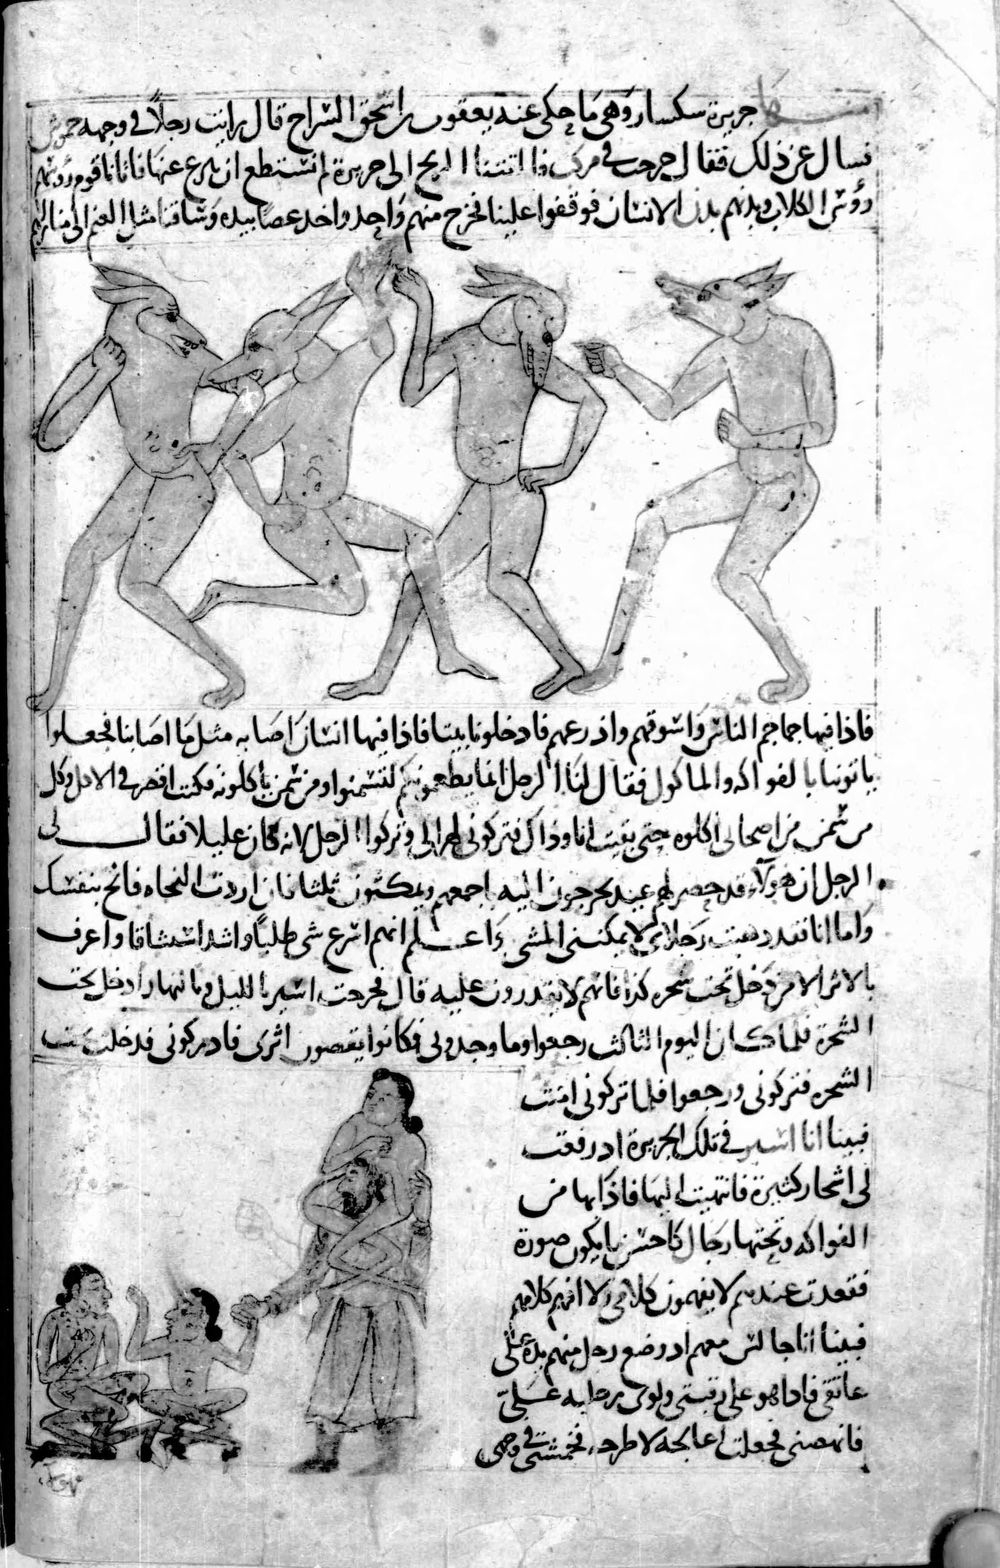 ومنها جزيرة سكسار وهي ما حكى عنه يعقوب بن اسحق السراج قال رايت رجلا في وجهه خموش
فسال عن ذلك فقال خرجت في مركب فالقتنا الريح الى جزيرة لم نستطع ان نبرح عنها فاتانا قوم وجوههم
رؤس الكلاب وبدنهم بدن الانسان فوقفوا علينا فخرج منهم واحد واخذ عصا بيده وساقنا مثل الغنم الى منازلهم
فاذا فيها جماجم الناس واسوقهم واذرعهم فادخلونا بيتا فاذا فيها انسان اصابه مثل ما اصابنا فجعلوا
ياتوننا بالفواكه والماكول فقال لنا الرجل انما يطعمونكم لتسمنوا ومن سمن ياكلونه فكنت اقصر في الاكل وكل
من سمن من اصحابي اكلوه حتى بقيت انا وذاك فتركوني لهزالي وتركوا الرجل لانه كان عليلا فقال لي
الرجل ان هؤلاء قد حضر لهم عيد يخرجون اليه اجمعهم ويمكثون ثلثا فان اردت النجاه فانج بنفسك
واما انا فقد ذهبت رجلاي لا يمكنني المشي واعلم انهم اسرع شى طلبا واشد استنشاقا واعرف
بالاثر الا من دخل تحت شجره كذا فانهم لا يقدرون عليه قال فخرجت اسير بالليل وبالنهار ادخل تحت
الشجرة فلما كان اليوم الثالث رجعوا وما وجدوني فكانوا يقصون اثرى فادركوني قد دخلت تحت
الشجره فتركوني ورجعوا فلما تركوني امنت
فبينا انا اسير في تلك الجزيرة اد رفعت
لي اشجار كثيرة فانتهيت اليها فاذا بها من
الفواكه وتحتها رجال كاحسن ما يكون صورة
فقعدت عندهم لا يفهمون كلامي ولا افهم كلامهم
فبينا انا جالس معهم اد وضع رجل منهم يده على
عاتقي فاذا هو على رقبتي ولوى رجليه علي
فانهضني فجعلت اعالجه لاطرحه فخمشني في وجهى